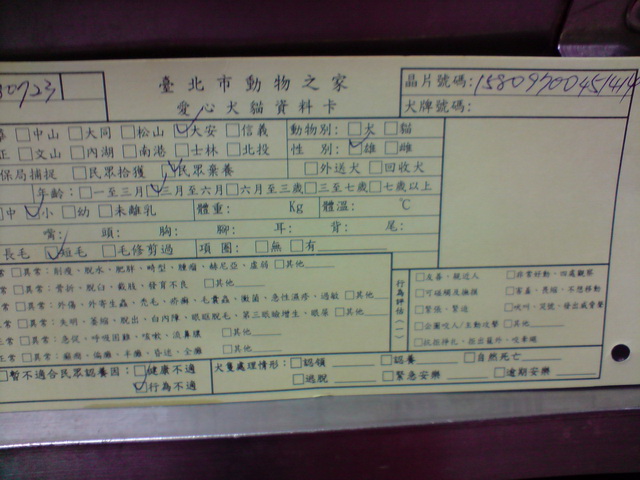 30723 臺北市動物之家 晶片號碼:
愛心犬貓資料卡 犬牌號碼:
□中山 □大同 □松山 ☑大安 □信義 動物別: □犬 □貓
□文山 □內湖 □南港 □士林 □北投 性別: ☑雄 □雌
保局捕捉 □民眾拾獲 ☑民眾棄養 □外送犬 □回收犬
年齡: □一至三月 ☑三月至六月 □六月至三歲 □三至七歲 □七歲以上
中 ☑小 □幼 □未離乳 體重: Kg 體溫: ℃
嘴: 頭: 胸: 腳: 耳: 背: 尾:
長毛 ☑短毛 □毛修剪過 項圈: □無 □有
常 □異常: 削瘦、脫水、肥胖、畸型、腫瘤、赫尼亞、虛弱 □其他
常 □異常: 骨折、脫臼、截肢、發育不良 □其他
常 □異常: 外傷、外寄生蟲、禿毛、疥癬、毛囊蟲、黴菌、急性濕疹、過敏 □其他
□異常: 失明、萎縮、脫出、白內障、眼瞼脫毛、第三眼瞼增生、眼屎 □其他
正常 □異常: 急促、呼吸困難、咳嗽、流鼻膿 □其他
正常 □異常: 癲癇、偏癱、半癱、昏迷、全癱 □其他
行為評估(一)
□友善、親近人 □非常好動、四處觀察
□可碰觸及撫摸 □害羞、畏縮、不想移動
□緊張、緊迫 □吠叫、哭號、發出威脅聲
□企圖咬人/主動攻擊 □其他
□暫不適合民眾認養因: □健康不適 犬隻處理情形: □認領 □認養 □自然死亡
☑行為不適 □逃脫 □緊急安樂 □逾期安樂